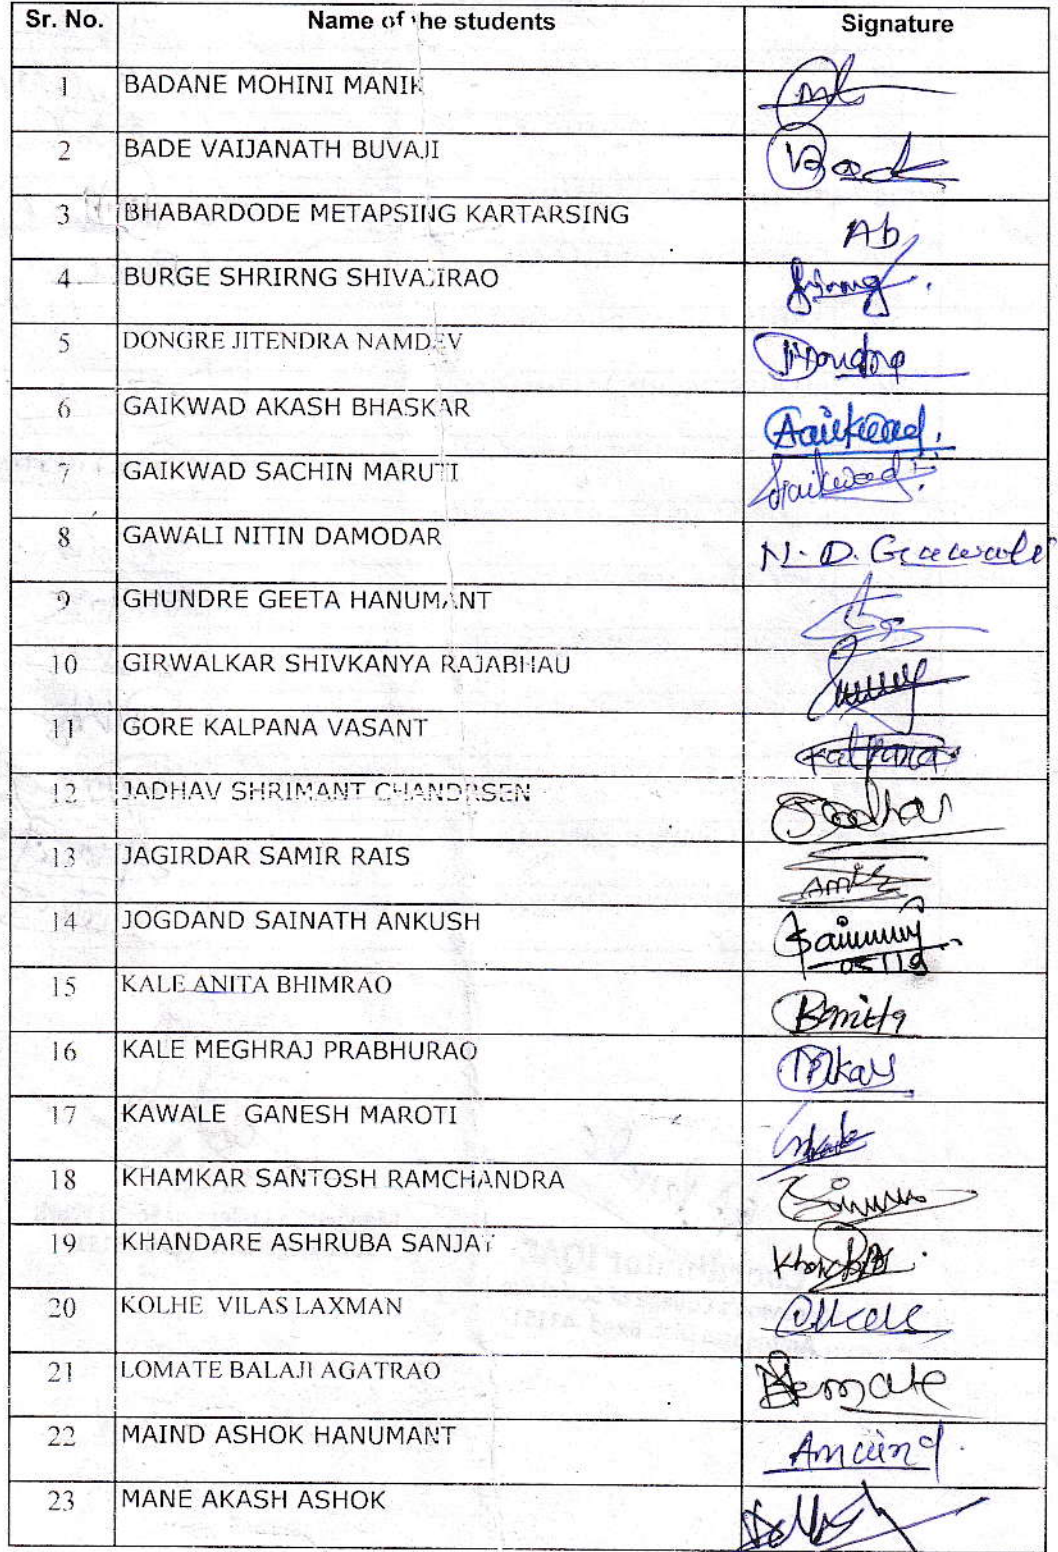 Sr. No. Name of the students Signature
1 BADANE MOHINI MANIK
2 BADE VAIJANATH BUVAJI
3 BHABARDODE METAPSING KARTARSING Ab
4 BURGE SHRIRNG SHIVAJIRAO
5 DONGRE JITENDRA NAMDEV
6 GAIKWAD AKASH BHASKAR
7 GAIKWAD SACHIN MARUTI Gaikwad
8 GAWALI NITIN DAMODAR N. D. Gawali
9 GHUNDRE GEETA HANUMANT
10 GIRWALKAR SHIVKANYA RAJABHAU
11 GORE KALPANA VASANT Kalpana
12 JADHAV SHRIMANT CHANDRSEN Jadhav
13 JAGIRDAR SAMIR RAIS
14 JOGDAND SAINATH ANKUSH
15 KALE ANITA BHIMRAO
16 KALE MEGHRAJ PRABHURAO
17 KAWALE GANESH MAROTI
18 KHAMKAR SANTOSH RAMCHANDRA
19 KHANDARE ASHRUBA SANJAY
20 KOLHE VILAS LAXMAN
21 LOMATE BALAJI AGATRAO
22 MAIND ASHOK HANUMANT Amaind
23 MANE AKASH ASHOK